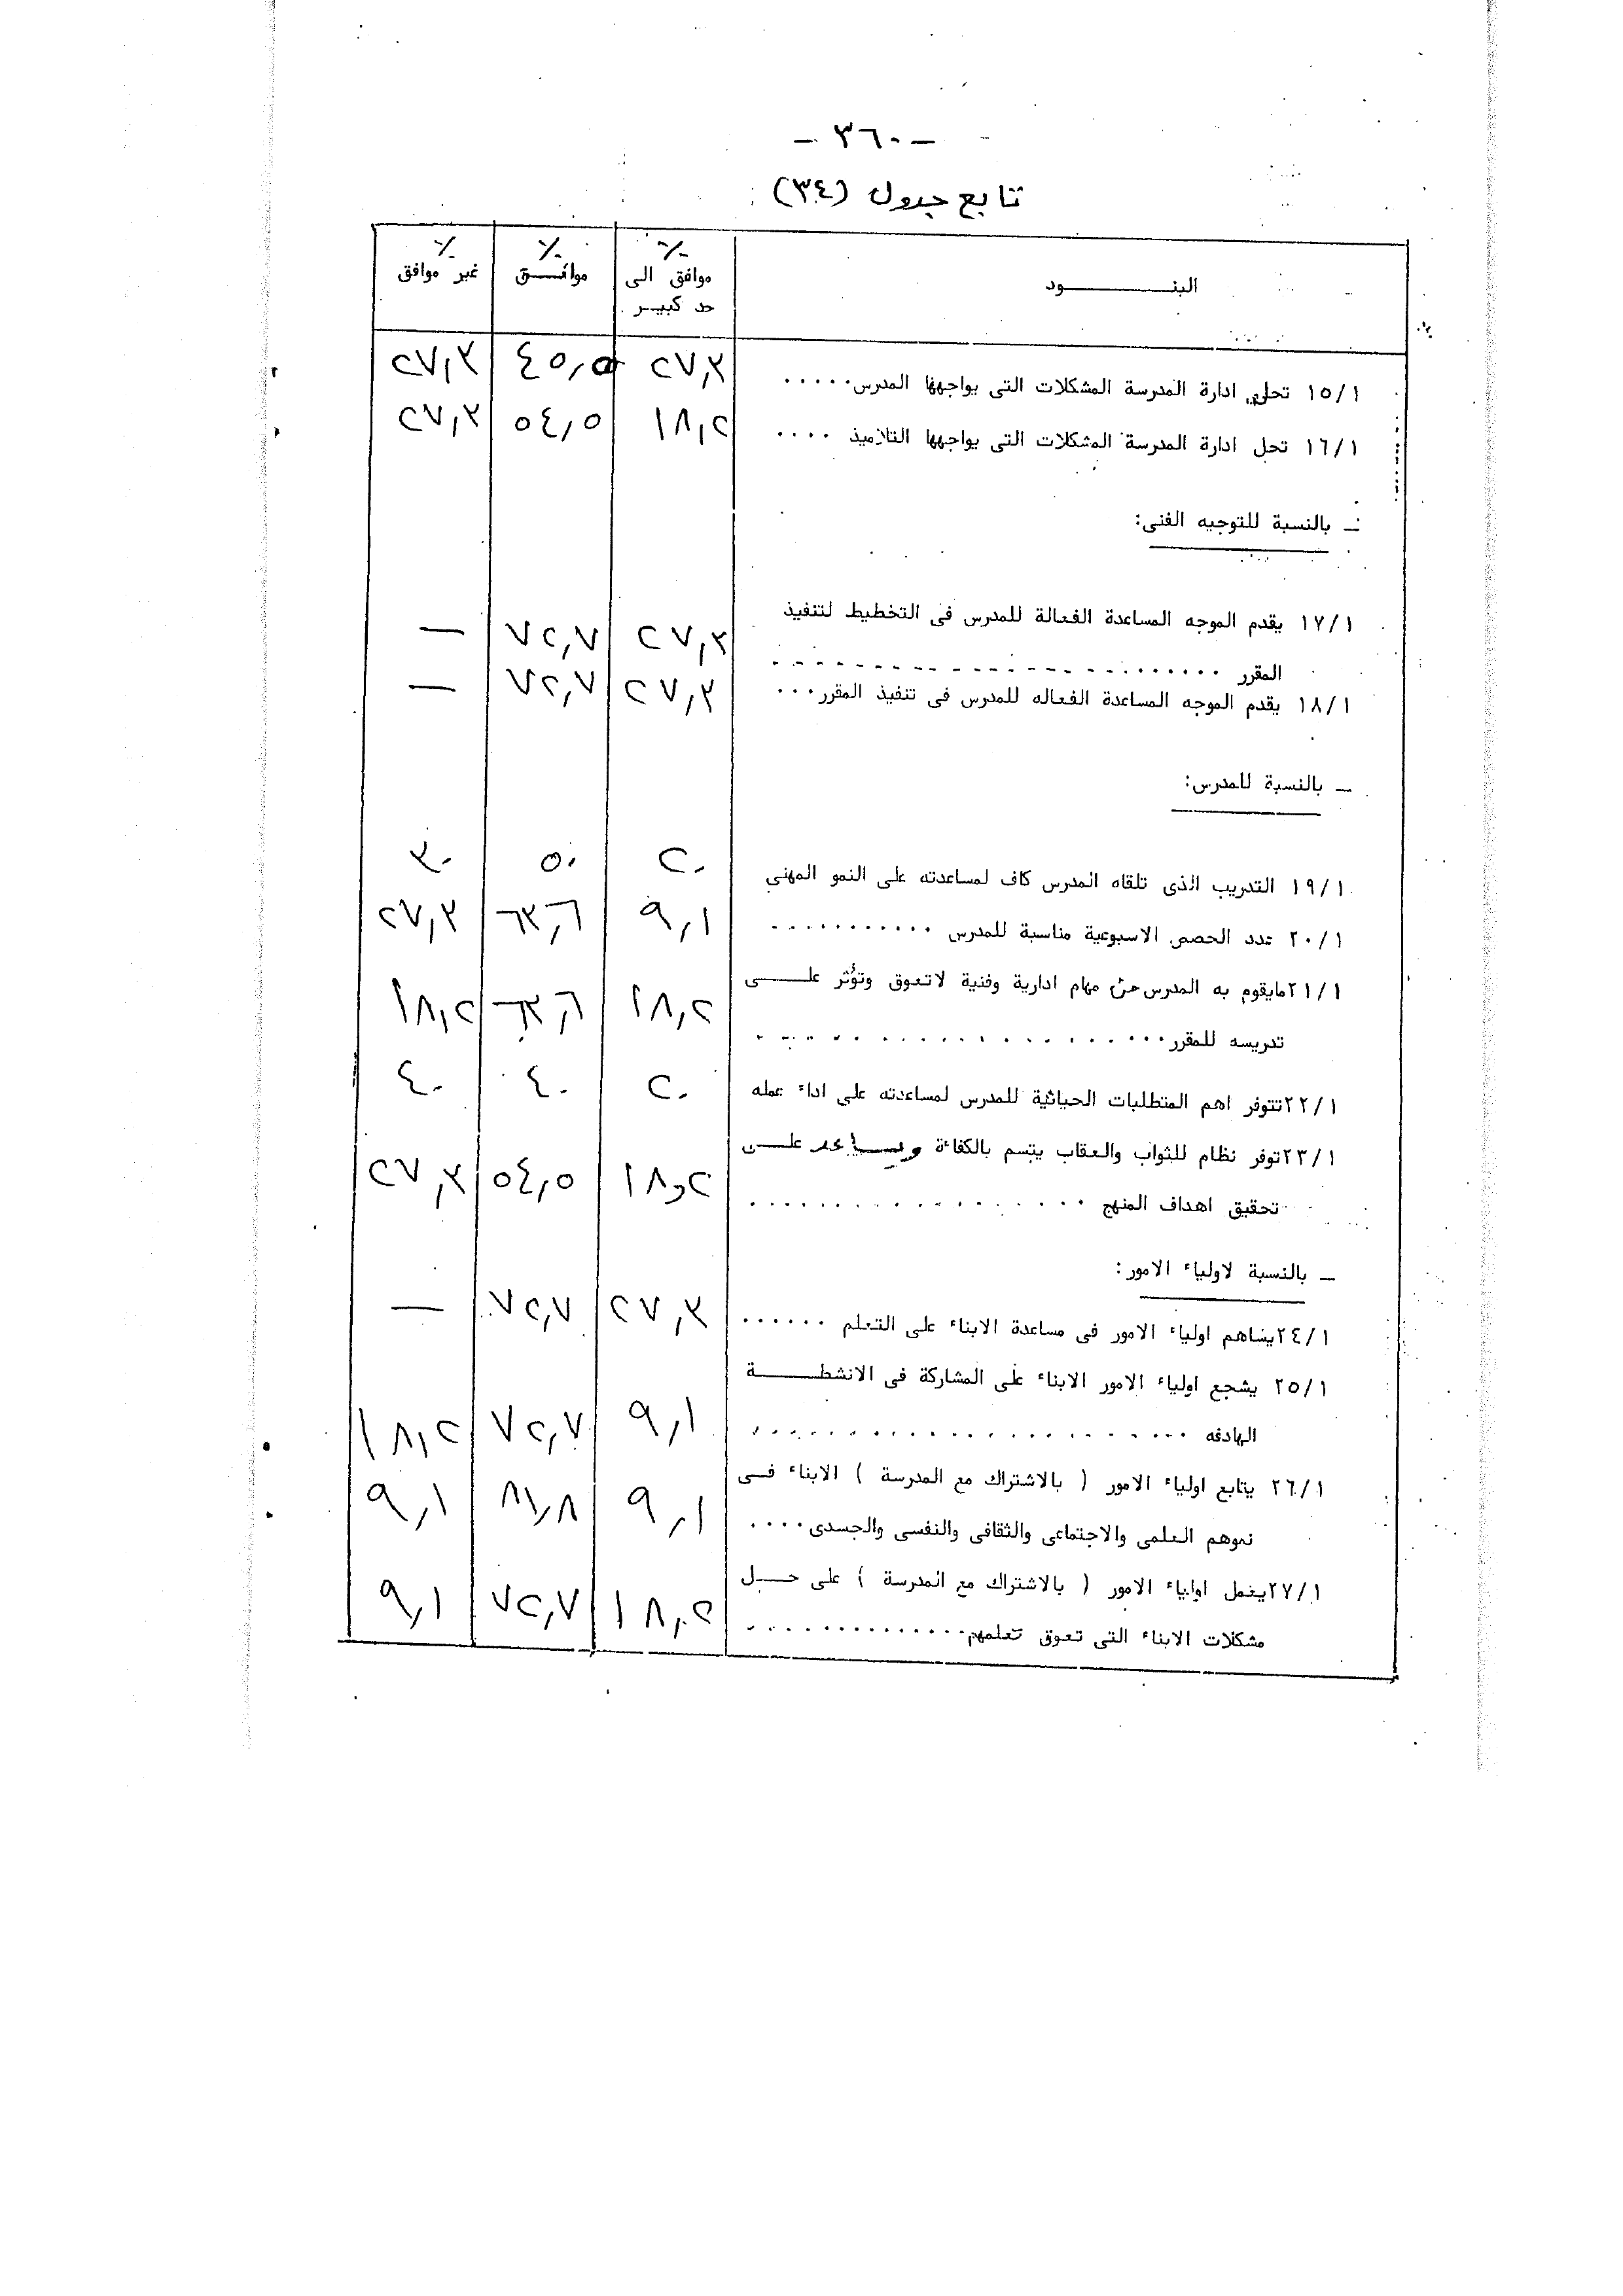 - ٣٦٠ -
تابع جدول (٣٤)
البنـــــــــود ٪ موافق الى حد كبيـر ٪ موافــــق ٪ غير موافق
١٥/١ تحل ادارة المدرسة المشكلات التى يواجهها المدرس ..... ٢٧,٣ ٤٥,٥ ٢٧,٣
١٦/١ تحل ادارة المدرسة المشكلات التى يواجهها التلاميذ .... ١٨,٢ ٥٤,٥ ٢٧,٣
ـ بالنسبة للتوجيه الفنى:
١٧/١ يقدم الموجه المساعدة الفعالة للمدرس فى التخطيط لتنفيذ
المقرر .................... ٢٧,٣ ٧٢,٧ —
١٨/١ يقدم الموجه المساعدة الفعاله للمدرس فى تنفيذ المقرر... ٢٧,٣ ٧٢,٧ —
ـ بالنسبة للمدرس:
١٩/١ التدريب الذى تلقاه المدرس كاف لمساعدته على النمو المهنى ٢٠ ٥٠ ٣٠
٢٠/١ عدد الحصص الاسبوعية مناسبة للمدرس ............ ٩,١ ٦٣,٦ ٢٧,٣
٢١/١ مايقوم به المدرس من مهام ادارية وفنية لاتعوق وتؤثر علـــى
تدريسه للمقرر .................... ١٨,٢ ٦٣,٦ ١٨,٢
٢٢/١ تتوفر اهم المتطلبات الحياتية للمدرس لمساعدته على اداء عمله ٢٠ ٤٠ ٤٠
٢٣/١ توفر نظام للثواب والعقاب يتسم بالكفاءة ويساعد علــى
تحقيق اهداف المنهج .................. ١٨,٢ ٥٤,٥ ٢٧,٣
ـ بالنسبة لاولياء الامور:
٢٤/١ يساهم اولياء الامور فى مساعدة الابناء على التعلم ...... ٢٧,٣ ٧٢,٧ —
٢٥/١ يشجع اولياء الامور الابناء على المشاركة فى الانشطـــة
الهادفه .................... ٩,١ ٧٢,٧ ١٨,٢
٢٦/١ يتابع اولياء الامور ( بالاشتراك مع المدرسة ) الابناء فــى
نموهم العلمى والاجتماعى والثقافى والنفسى والجسدى .... ٩,١ ٨١,٨ ٩,١
٢٧/١ يعمل اولياء الامور ( بالاشتراك مع المدرسة ) على حــل
مشكلات الابناء التى تعوق تعلمهم .............. ١٨,٢ ٧٢,٧ ٩,١